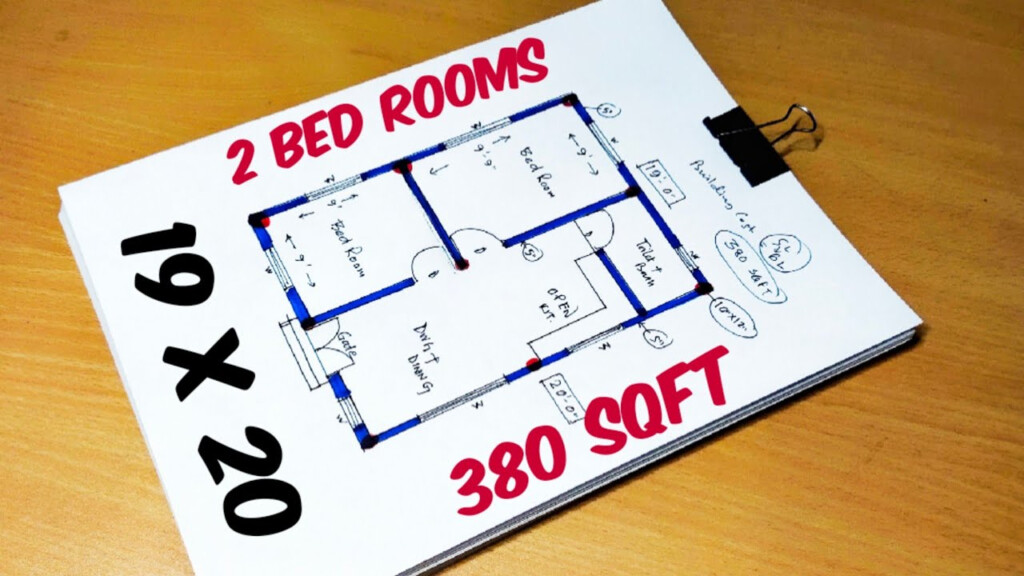 2 BED ROOMS
19 X 20
380 SQFT
Bed Room
9'
9'
Bed Room
9'-9"
9'
19'-0"
Building Cost
380 SQFT
Toilet +
Bath
OPEN
KIT.
Gate
Dwh+
DINNG
20'-0"
10"x12"
5"
5"
5"
D
D
D
W
W
W
W
W